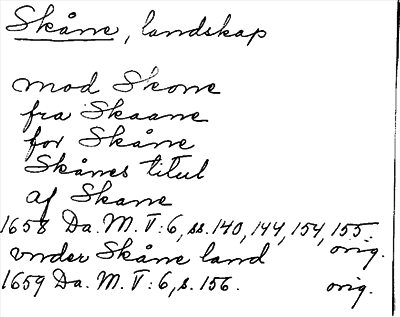 Skåne, landskap
mod Skone
fra Skaane
for Skåne
Skånes titul
af Skane
1658 Da. M. V:6, ss. 140, 144, 154, 155. orig.
vnder Skåne land
1659 Da. M. V:6, s. 156. orig.